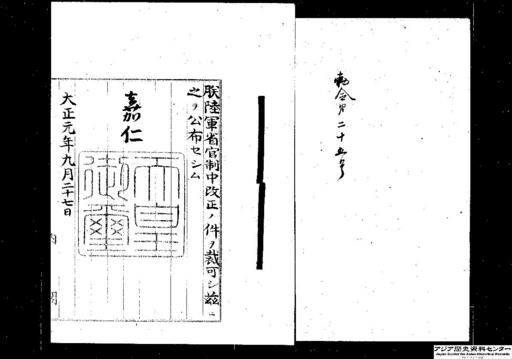 勅令第二十五号
朕陸軍省官制中改正ノ件ヲ裁可シ茲ニ
之ヲ公布セシム
嘉仁
天皇御璽
大正元年九月二十七日
内閣
アジア歴史資料センター
Japan Center for Asian Historical Records